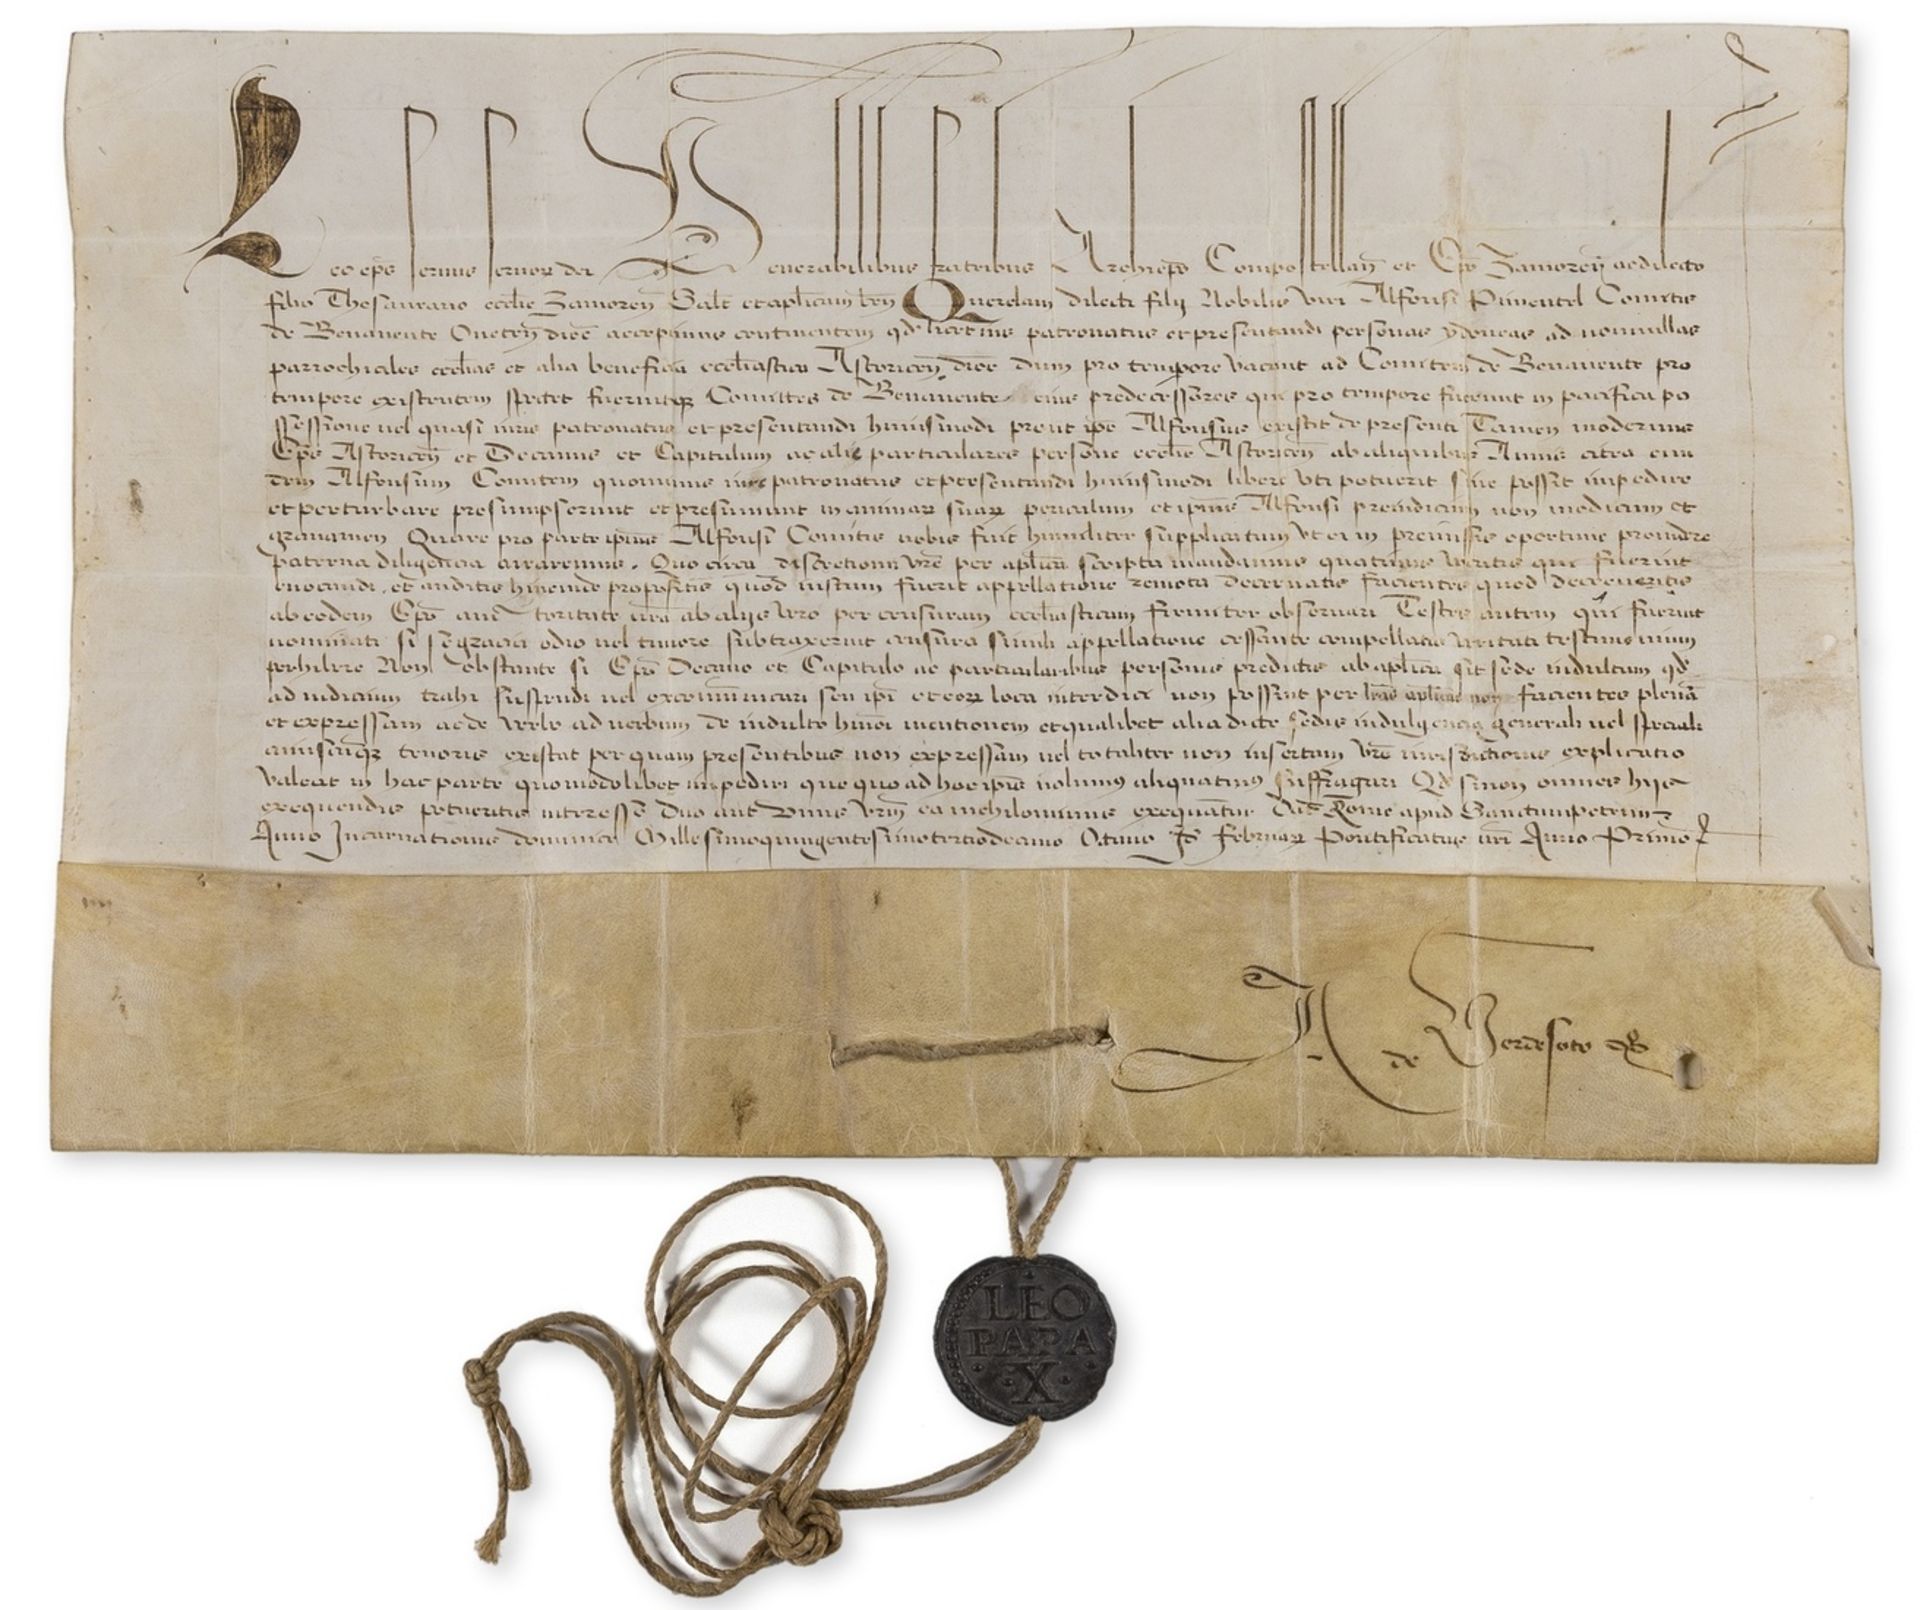 Leo ep̄s servus servor dei Venerabilibus fratribus Archiep̄o Compostellan̄ et Ep̄o Zamoren̄ ac dilecto
filio Thesaurario eccl̄ie Zamoren̄ Salt̄ et aplicam ben̄ Querelam dilecti filij Nobilis viri Alfonsi Pimentel Comitis
de Benavente Oveten̄ dioc̄ accepimus continentem qđ licet ius patronatus et presentandi personas ydoneas ad nonnullas
parrochiales eccl̄ias et alia beneficia eccl̄iastica Astoricen̄ dioc̄ dum pro tempore vacant ad Comitem de Benavente pro
tempore existentem spectet fuerintqꝫ Comites de Benavente eius predecessores qui pro tempore fuerunt in pacifica po
ssessione vel quasi iuris patronatus et presentandi huiusmodi prout ip̄e Alfonsus existit de presenti Tamen modernus
Ep̄s Astoricen̄ et Decanus et Capitulum ac alie particulares persone eccl̄ie Astoricen̄ ab aliquibus Annis citra eun
dem Alfonsum Comitem quominus iure patronatus et presentandi huiusmodi libere uti potuerit sive possit impedire
et perturbare presumpserunt et presumunt in animar suar periculum et ip̄ius Alfonsi preiudicium non modicum et
gravamen Quare pro parte ip̄ius Alfonsi Comitis nobis fuit humiliter supplicatum ut ei in premissis oportune providere
paterna diligencia curaremus. Quo circa discretioni vr̄e per aplica scripta mandamus quatinus vocatis qui fuerint
evocandi, et auditis hincinde propositis quod iustum fuerit appellatione remota decernatis facientes quod decreveritis
ab eodem Ep̄o auctoritate nr̄a ab alijs vero per censuram eccl̄iasticam firmiter observari Testes autem qui fuerint
nominati si se gracia odio vel timore subtraxerint censura simili appellatione cessante compellatis veritati testimonium
perhibere Non obstante si Ep̄o Decano et Capitulo ac particularibus personis predictis ab aplica sit sede indultum qđ
ad iudicium trahi suspendi vel excommunicari seu ip̄i et eor loca interdici non possint per lr̄as aplicas non facientes plenā
et expressam ac de verbo ad verbum de indulto hmoi mentionem et qualibet alia dicte sedis indulgencia generali vel speciali
cuiuscunqꝫ tenoris existat per quam presentibus non expressam vel totaliter non insertam vr̄e iurisdictionis explicatio
valeat in hac parte quomodolibet impediri que quo ad hoc ip̄is nolumus aliquatinus suffragari Qđ si non omnes hijs
exequendis potueritis interesse Duo aut Unus vr̄m ea nichilominus exequātur Dat̄ Rome apud Sanctumpetrum
Anno Incarnationis dominice Millesimoquingentesimotertiodecimo Octavo Id̄ Februar Pontificatus nr̄i Anno Primo
de Verdesoto
LEO
PAPA
X